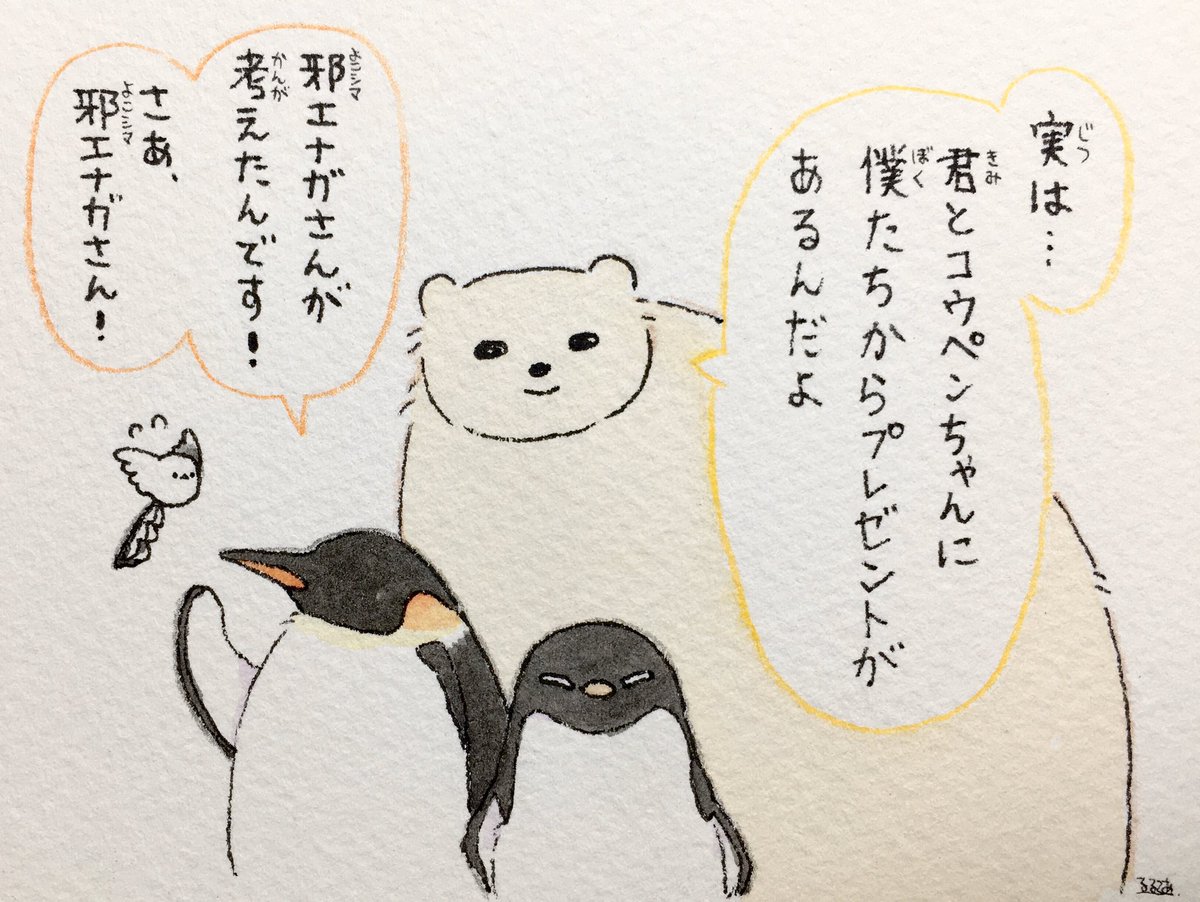 実は…
君とコウペンちゃんに
僕たちからプレゼントが
あるんだよ
邪エナガさんが
考えたんです!
さあ、
邪エナガさん!
じつ
きみ
ぼく
よこシマ
かんが
よこシマ
るるてあ